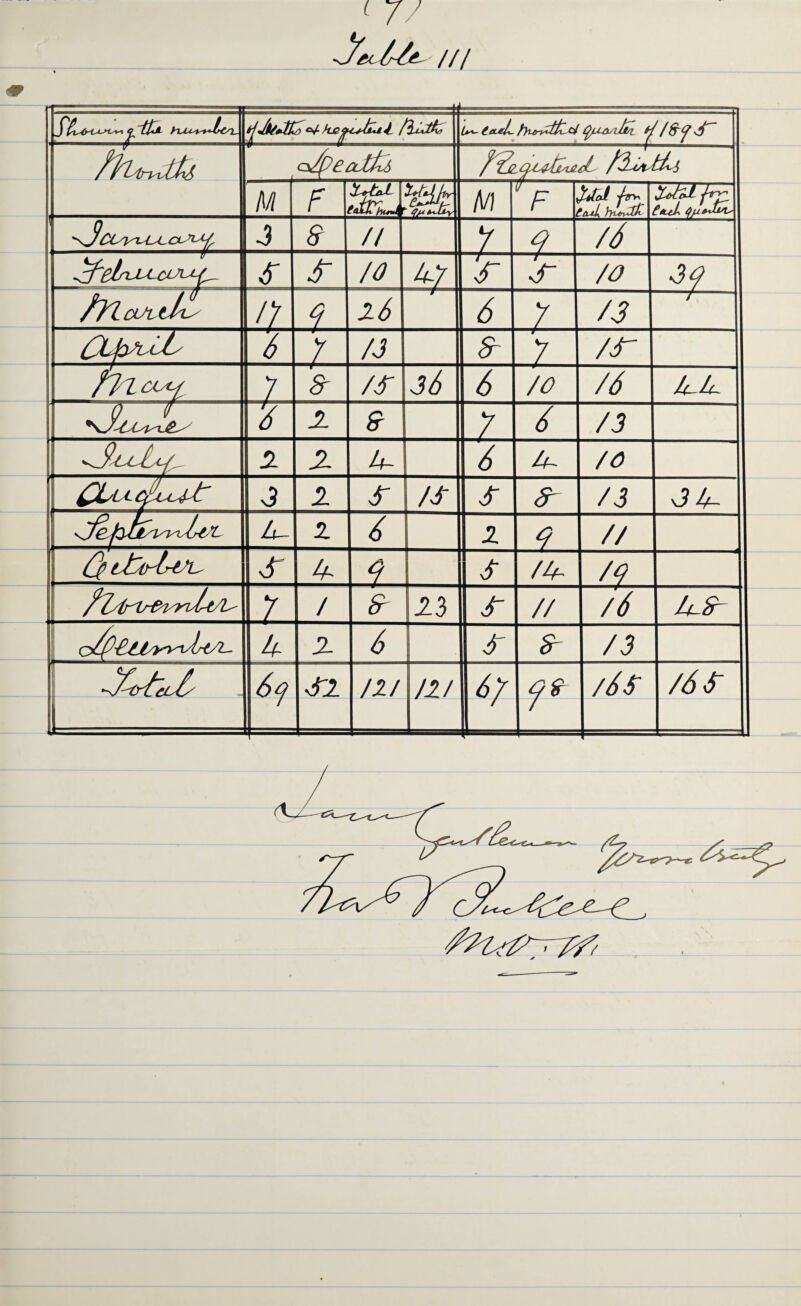 (7)
Table III
Showing the number of Deaths & Registered Births in each Month & Quarter of 1895
Months Deaths Registered Births
M F Total for each Month Total for Each Quarter M F Total for each Month Total for Each Quarter
January 3 8 11 7 9 16
February 5 5 10 47 5 5 10 39
March 17 9 26 6 7 13
April 6 7 13 8 7 15
May 7 8 15 36 6 10 16 44
June 6 2 8 7 6 13
July 2 2 4 6 4 10
August 3 2 5 15 5 8 13 34
September 4 2 6 2 9 11
October 5 4 9 5 14 19
November 7 1 8 23 5 11 16 48
December 4 2 6 5 8 13
Total 69 52 121 121 67 98 165 165
I am
Gentlemen
Yours truly
M.O.H.